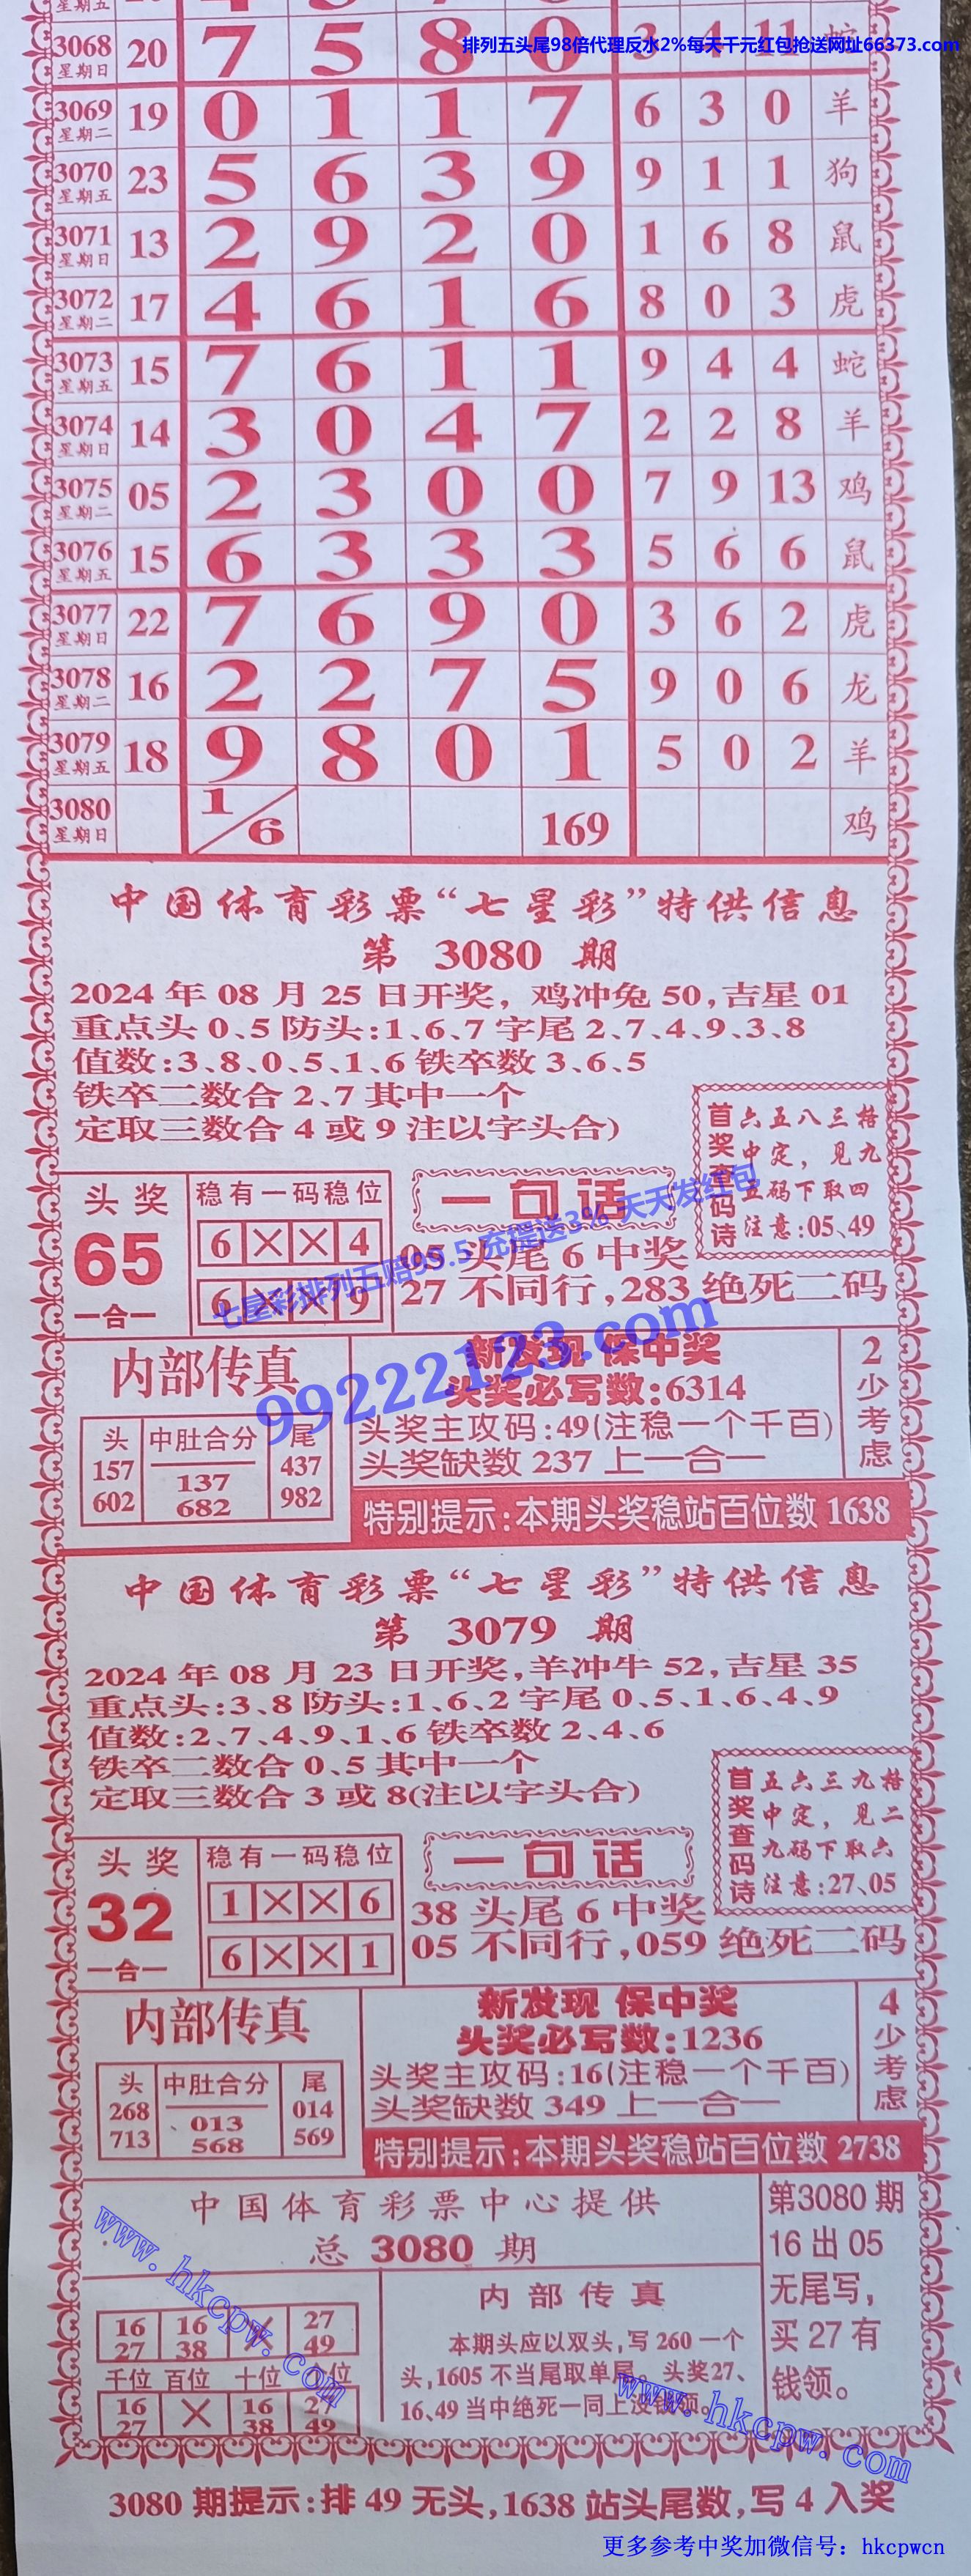 星期五
排列五头尾98倍代理反水2%每天千元红包抢送网址66373.com
3068 星期日 20 7 5 8 0 3 4 11 蛇
3069 星期二 19 0 1 1 7 6 3 0 羊
3070 星期五 23 5 6 3 9 9 1 1 狗
3071 星期日 13 2 9 2 0 1 6 8 鼠
3072 星期二 17 4 6 1 6 8 0 3 虎
3073 星期五 15 7 6 1 1 9 4 4 蛇
3074 星期日 14 3 0 4 7 2 2 8 羊
3075 星期二 05 2 3 0 0 7 9 13 鸡
3076 星期五 15 6 3 3 3 5 6 6 鼠
3077 星期日 22 7 6 9 0 3 6 2 虎
3078 星期二 16 2 2 7 5 9 0 6 龙
3079 星期五 18 9 8 0 1 5 0 2 羊
3080 星期日 1/6 169 鸡
中国体育彩票“七星彩”特供信息
第 3080 期
2024 年 08 月 25 日开奖, 鸡冲兔 50,吉星 01
重点头 0、5 防头:1、6、7 字尾 2、7、4、9、3、8
值数:3、8、0、5、1、6 铁卒数 3、6、5
铁卒二数合 2、7 其中一个
定取三数合 4 或 9 注以字头合)
首奖查码诗
六五八三格
中定，见九
五码下取四
注意:05、49
头奖
65
一合一
稳有一码稳位
6 × × 4
6 × × 9
一句话
05 头尾 6 中奖
27 不同行,283 绝死二码
七星彩排列五赔99.5 充提送3% 天天发红包
99222123.com
内部传真
头 中肚合分 尾
157 137 437
602 682 982
新发现 保中奖
头奖必写数:6314
头奖主攻码:49(注稳一个千百)
头奖缺数 237 上一合一
2少考虑
特别提示:本期头奖稳站百位数 1638
中国体育彩票“七星彩”特供信息
第 3079 期
2024 年 08 月 23 日开奖,羊冲牛 52,吉星 35
重点头:3、8 防头:1、6、2 字尾 0、5、1、6、4、9
值数:2、7、4、9、1、6 铁卒数 2、4、6
铁卒二数合 0、5 其中一个
定取三数合 3 或 8(注以字头合)
首奖查码诗
五六三九格
中定，见二
九码下取六
注意:27、05
头奖
32
一合一
稳有一码稳位
1 × × 6
6 × × 1
一句话
38 头尾 6 中奖
05 不同行,059 绝死二码
内部传真
头 中肚合分 尾
268 013 014
713 568 569
新发现 保中奖
头奖必写数:1236
头奖主攻码:16(注稳一个千百)
头奖缺数 349 上一合一
4少考虑
特别提示:本期头奖稳站百位数 2738
中国体育彩票中心提供
总 3080 期
第3080 期
16 出 05
无尾写,
买 27 有
钱领。
16 16 × 27
27 38 49
千位 百位 十位 个位
16 × 16 27
27 38 49
内部传真
本期头应以双头,写 260 一个
头,1605 不当尾取单尾。头奖27、
16、49 当中绝死一同上没钱领。
www.hkcpw.com
www.hkcpw.com
3080 期提示:排 49 无头,1638 站头尾数,写 4 入奖
更多参考中奖加微信号：hkcpwcn